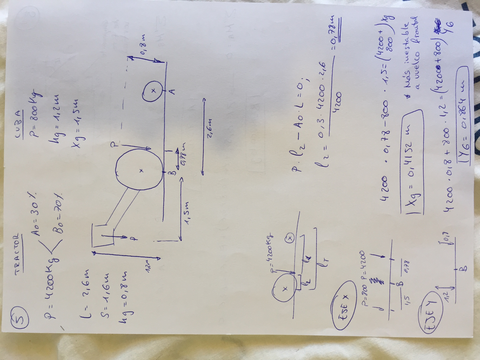 5
TRACTOR
P = 4200Kg
A0 = 30%
B0 = 70%
L = 2,6m
S = 1,6m
hg = 0,8m
CUBA
P = 800Kg
hg = 1,2m
Xg = 1,5m
P
P
0,8m
A
B
0,78m
1,5m
2,6m
P = 4200Kg
l2
P. l2 - A0 L = 0;
l2 = 0.3 4200 · 2,6
4200
= 0,78m
EJE X
P=800 P=4200
B
1,5
4200 · 0,78 - 800 · 1,5 = (4200+800) Xg
Xg = 0,4152 m
* Más inestable
a vuelco frontal
EJE Y
B
4200 · 0,8 + 800 · 1,2 = (4200+800) YG
YG = 0.864 m